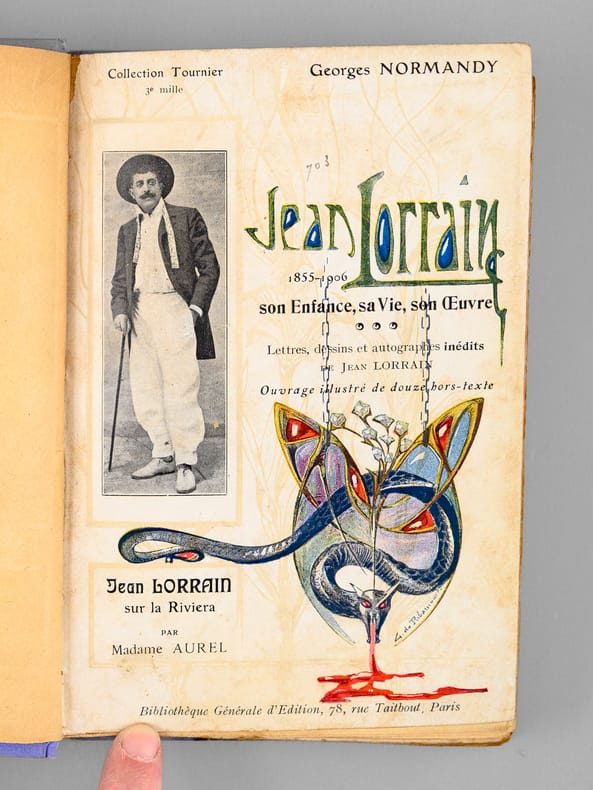 Collection Tournier
3e mille
Georges NORMANDY
703
Jean Lorrain
1855-1906
son Enfance, sa Vie, son Œuvre
Lettres, dessins et autographes inédits
DE JEAN LORRAIN
Ouvrage illustré de douze hors-texte
Jean LORRAIN
sur la Riviera
PAR
Madame AUREL
Bibliothèque Générale d'Edition, 78, rue Taitbout, Paris